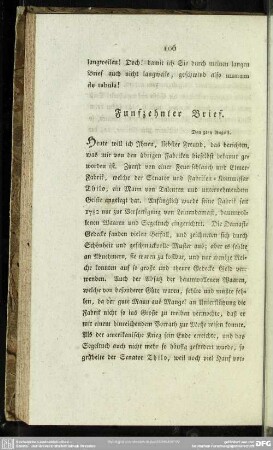 106
langweilen! Doch! damit ich Sie durch meinen langen
Brief auch nicht langweile, geschwind also manum
de tabula!
Funfzehnter Brief.
Vom 3ten August.
Heute will ich Ihnen, liebster Freund, das berichten,
was mir von den übrigen Fabriken hieselbst bekannt ge-
worden ist. Zuerst von einer Feuerschlauch und Eimer
Fabrik, welche der Senator und Fabriken-Kommissar
Thilo, ein Mann von Talenten und unternehmendem
Geiste angelegt hat. Anfänglich wurde seine Fabrik seit
1782 nur zur Verfertigung von Leinendamast, baumwol-
lenen Waaren und Segeltuch eingerichtet. Die Damast-
Gedecke fanden vielen Beifall, und zeichneten sich durch
Schönheit und geschmackvolle Muster aus; aber es fehlte
an Abnehmern, sie waren zu kostbar, und nur wenige Rei-
che konnten auf so große und theure Gedecke Geld ver-
wenden. Auch der Absatz der baumwollenen Waaren,
welche von besonderer Güte waren, schlug und mußte feh-
len, da der gute Mann aus Mangel an Unterstützung die
Fabrik nicht so ins Große zu treiben vermochte, daß er
mit einem hinreichendem Vorrath zur Messe reisen konnte.
Als der amerikanische Krieg sein Ende erreichte, und das
Segeltuch auch nicht mehr so häufig gefordert wurde, so
grübelte der Senator Thilo, weil noch viel Hanf vor-